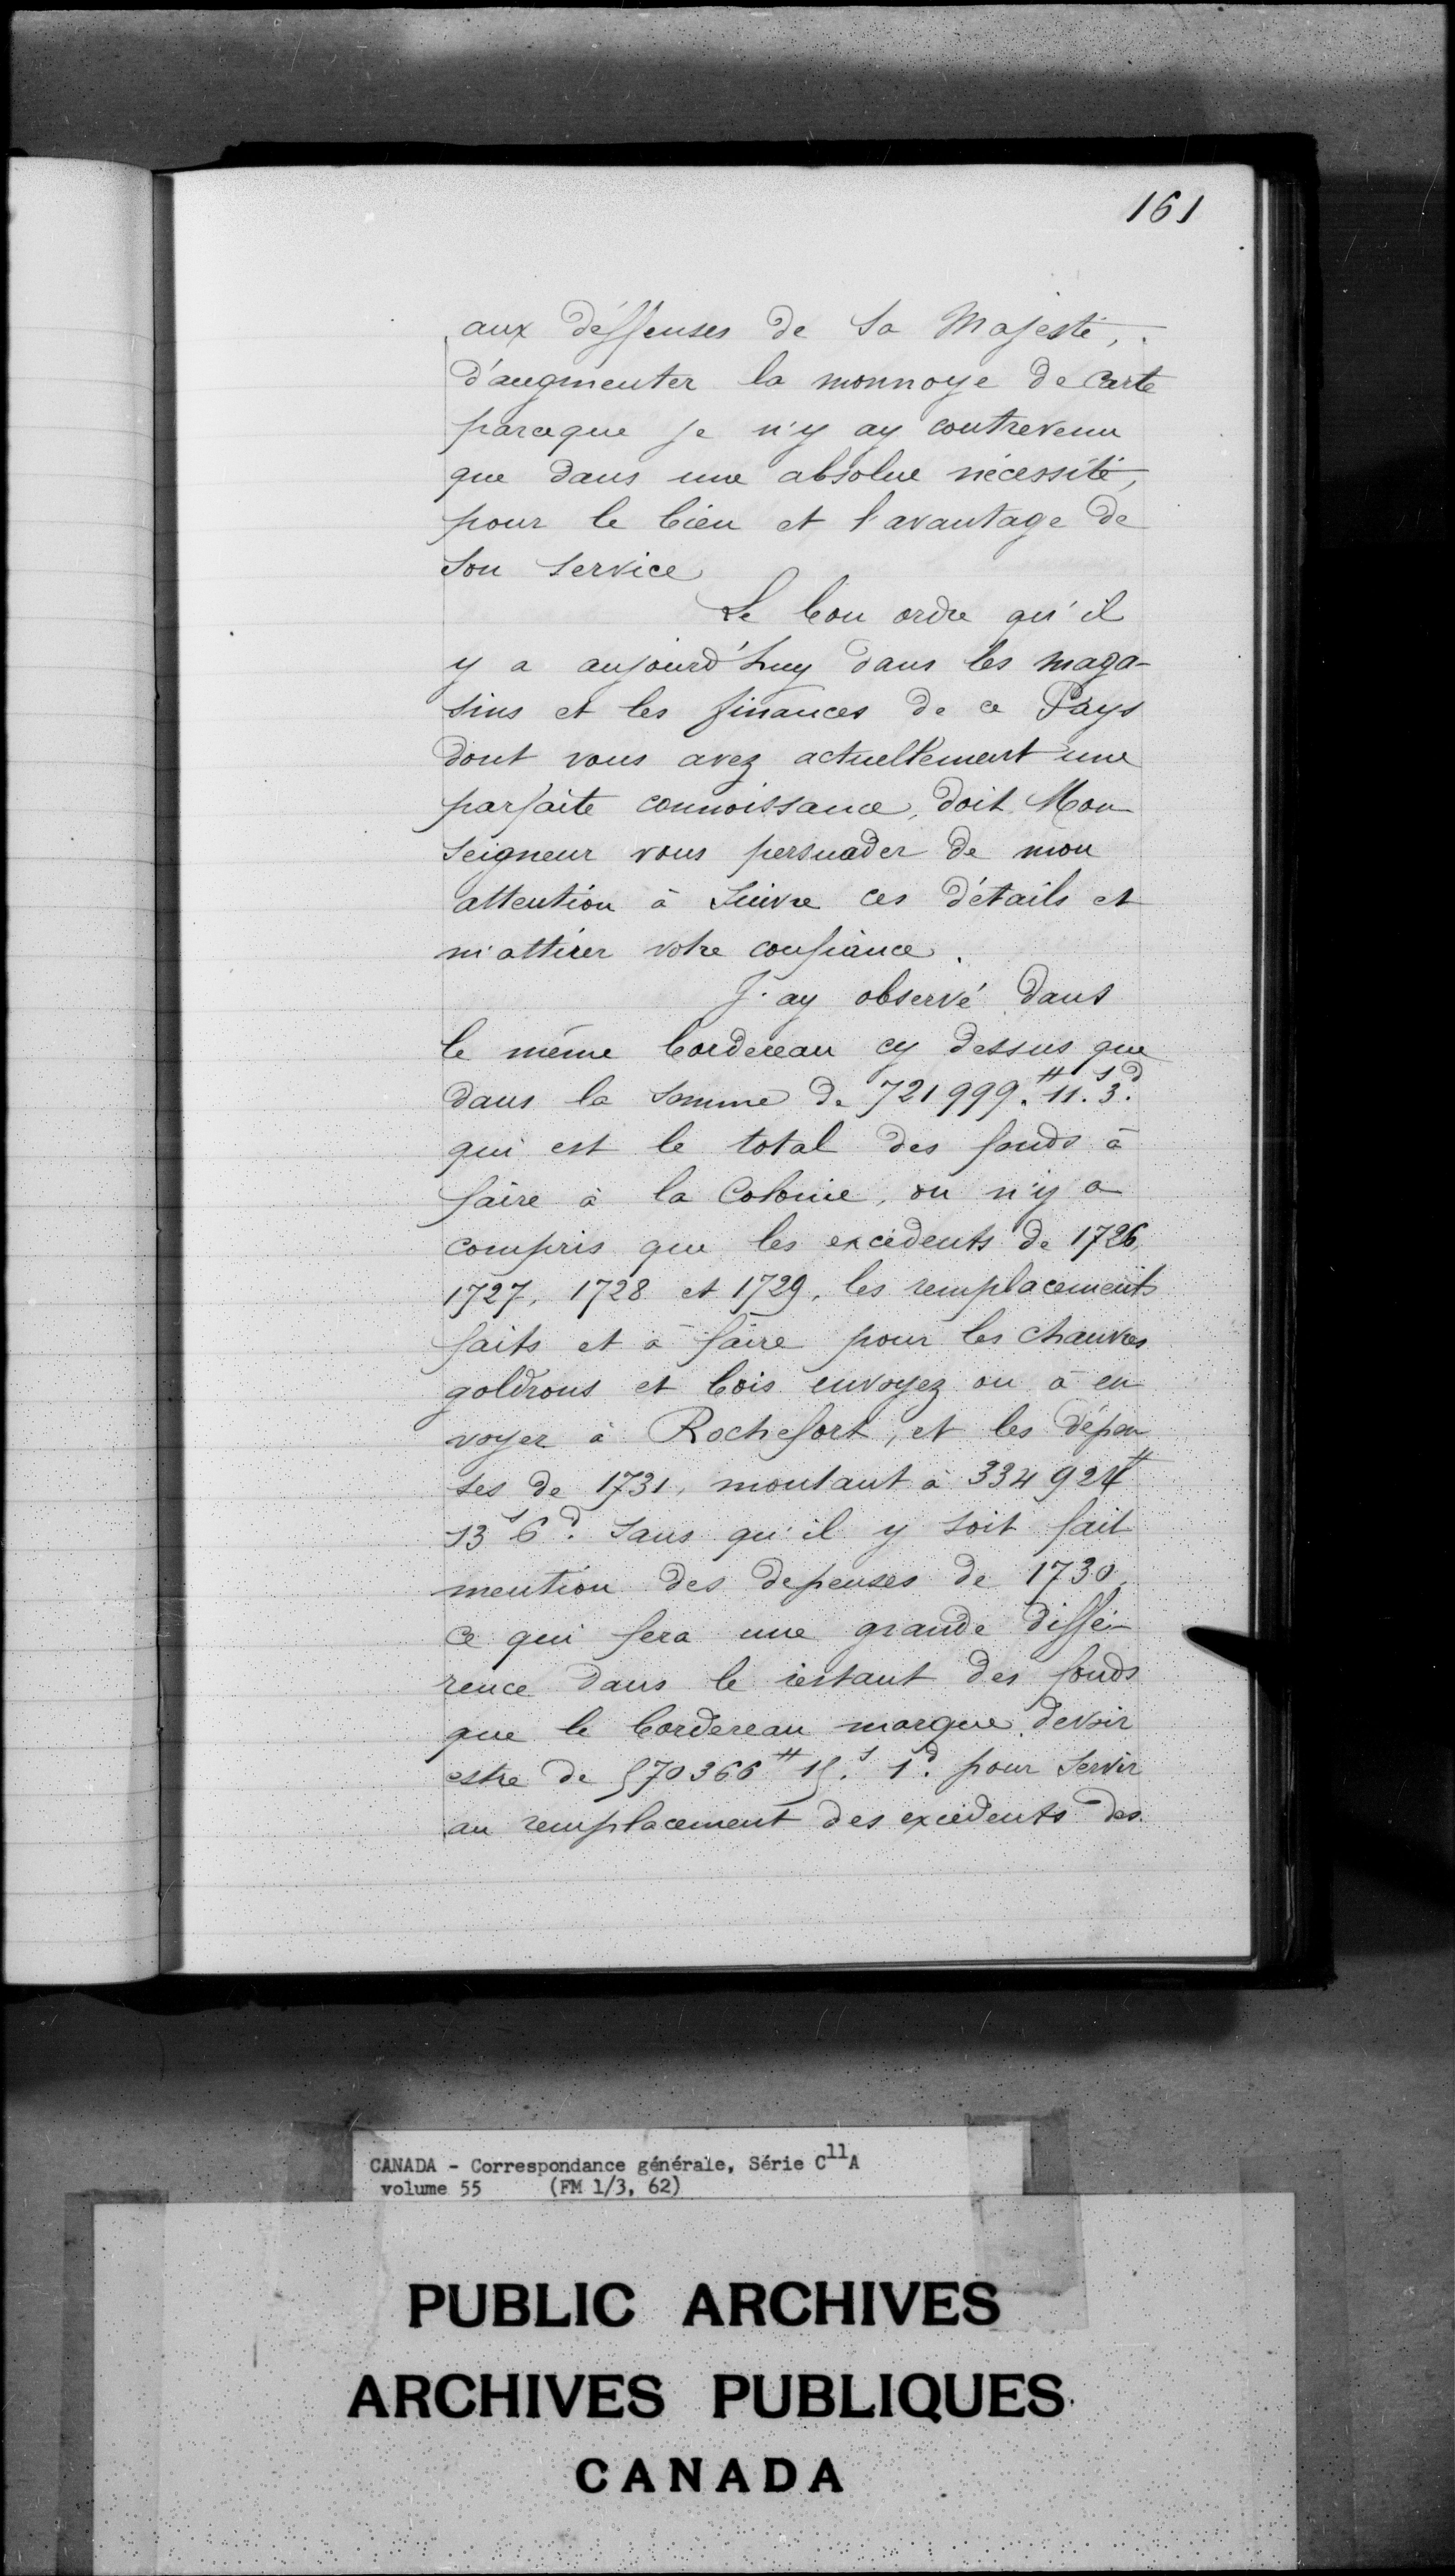 161
aux déffenses de Sa Majesté,
d'augmenter la monnoye de Carte
parceque je n'y ay contrevenu
que dans une absolue nécessité,
pour le bien et l'avantage de
Son Service
Le bon ordre qu'il
y a aujourd'huy dans les maga-
sins et les finances de ce Pays
dont vous avez actuellement une
parfaite connoissance, doit Mon
Seigneur vous persuader de mon
attention à Suivre ces détails et
m'attirer votre confiance.
J'ay observé dans
le même bordereau cy dessus que
dans la Somme de 721999.# 11.s 3.d
qui est le total des fonds à
faire à la Colonie, on n'y a
compris que les excédents de 1726,
1727, 1728 et 1729, les remplacements
faits et à faire pour les chanvres
goldrons et bois envoyez ou à en
voyer à Rochefort, et les dépen
ses de 1731, montant à 334924#
13s 6d. Sans qu'il y soit fait
mention des depenses de 1730,
ce qui fera une grande diffé-
rence dans le restant des fonds
que le bordereau marque devoir
estre de 570366# 15.s 1d. pour Servir
au remplacement des excédents des
CANADA - Correspondance générale, Série C11A
volume 55 (FM 1/3, 62)
PUBLIC ARCHIVES
ARCHIVES PUBLIQUES
CANADA